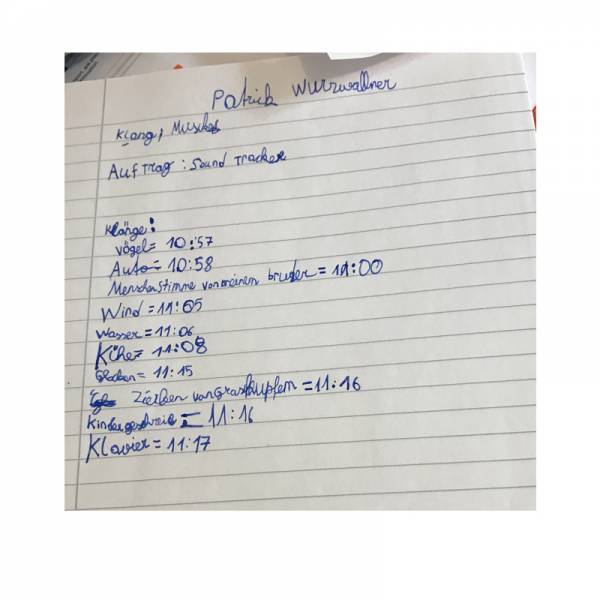 Patrick Wurzwallner
Klang, Musik
Auftrag: Sound Tracker
Klänge:
Vögel= 10:57
Auto= 10:58
Menschenstimme von meinem bruder = 11:00
Wind=11:05
Wasser=11:06
Kühe= 11:08
Glocken= 11:15
Zierben von Grashüpfern =11:16
Kindergeschrei= 11:16
Klavier=11:17